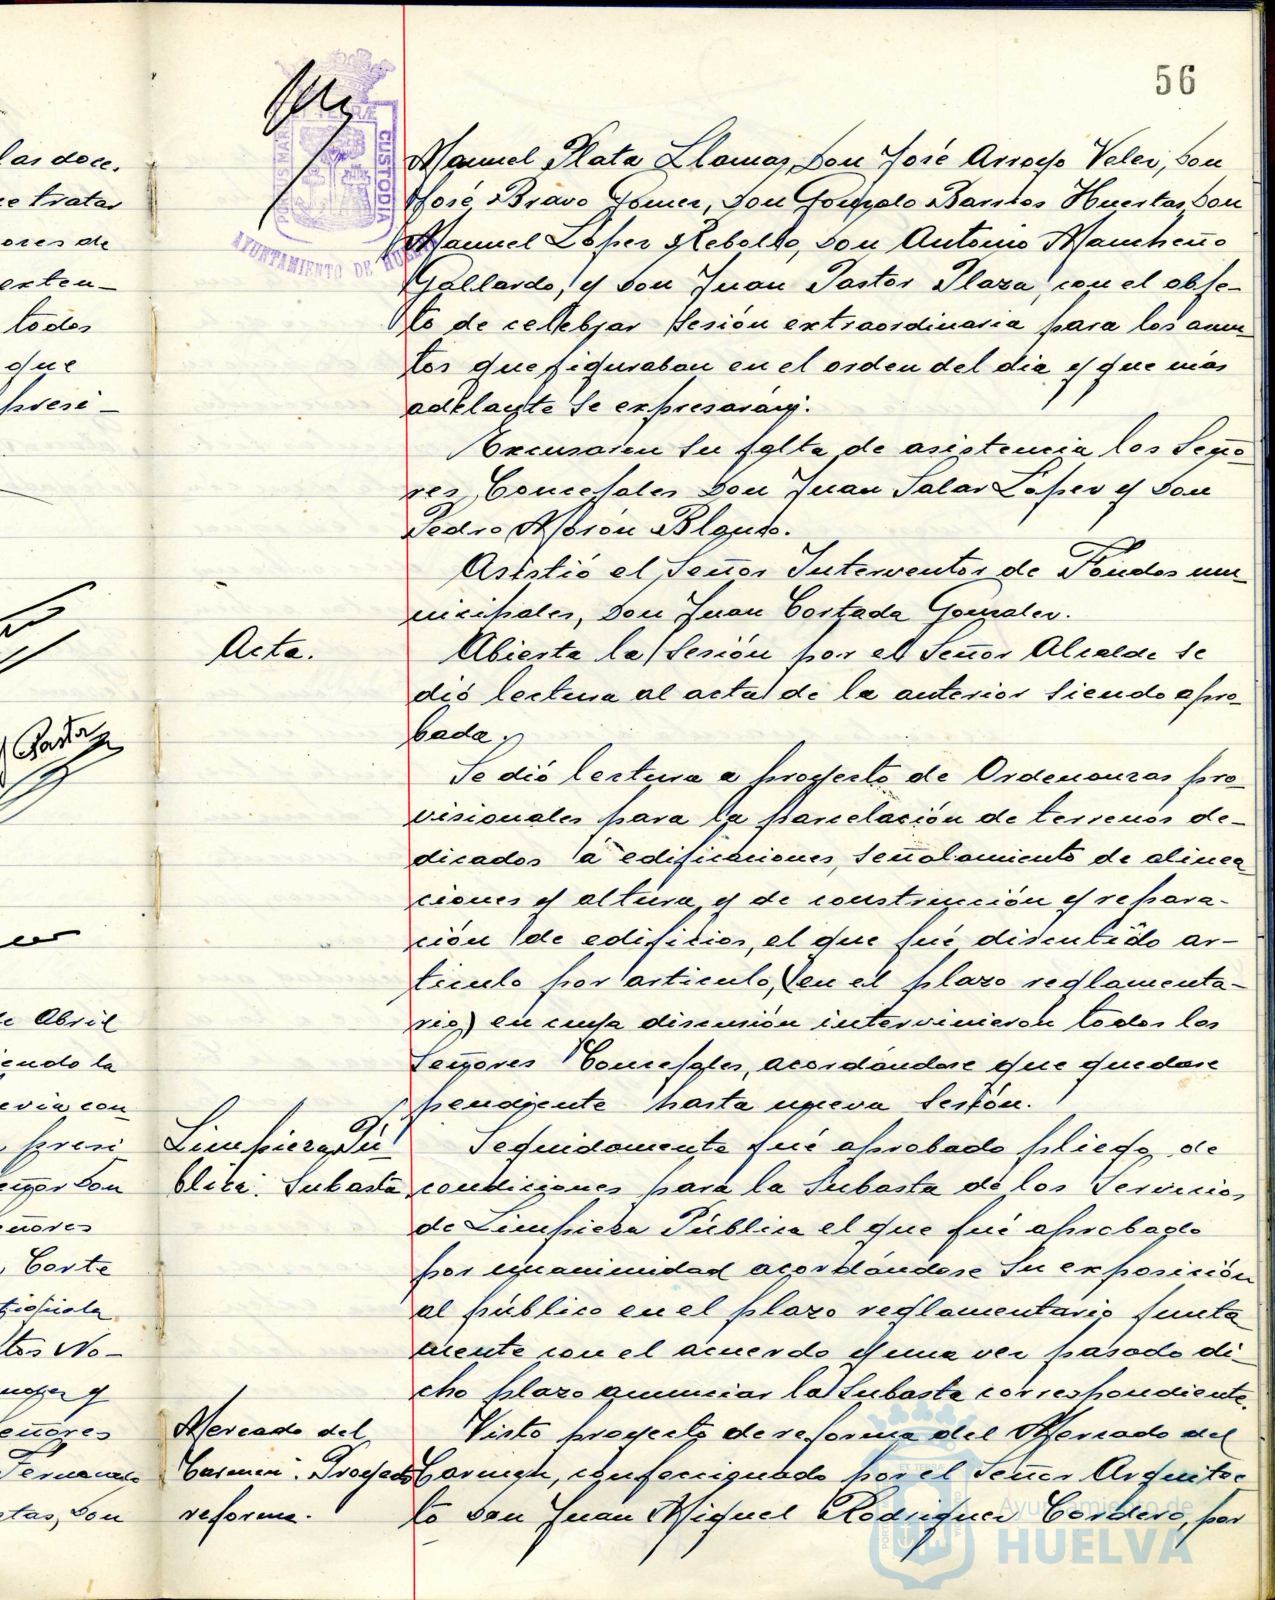 56
PORTUS MARIS ET TERRÆ CUSTODIA
AYUNTAMIENTO DE HUELVA
Manuel Plata Llamas, Don José Arroyo Velez, Don
José Bravo Gomez, Don Gonzalo Barrios Huertas, Don
Manuel López Rebollo, Don Antonio Mancheño
Gallardo, y Don Juan Pastor Plaza, con el obje-
to de celebrar Sesión extraordinaria para los asun-
tos que figuraban en el orden del dia y que más
adelante se expresarán.
Excusaron su falta de asistencia los Seño-
res Concejales Don Juan Salas López y Don
Pedro Morón Blanco.
Asistió el Señor Interventor de Fondos mu-
nicipales, Don Juan Cortada Gonzalez.
Acta.
Abierta la Sesión por el Señor Alcalde se
dió lectura al acta de la anterior siendo apro-
bada.
Se dió lectura a proyecto de Ordenanzas pro-
visionales para la parcelación de terrenos de-
dicados á edificaciones, señalamiento de alinea-
ciones y altura y de construcción y repara-
ción de edificios, el que fué discutido ar-
ticulo por articulo, (en el plazo reglamenta-
rio) en cuya discusión intervinieron todos los
Señores Concejales, acordándose que quedase
pendiente hasta nueva Sesión.
Limpieza Pú-
blica. Subasta
Seguidamente fué aprobado pliego de
condiciones para la Subasta de los Servicios
de Limpieza Pública el que fué aprobado
por unanimidad acordándose su exposición
al público en el plazo reglamentario junta
mente con el acuerdo y una vez pasado di-
cho plazo anunciar la Subasta correspondiente.
Mercado del
Carmen. Proyecto
reforma.
Visto proyecto de reforma del Mercado del
Carmen, confeccionado por el Señor Arquitec
to Don Juan Miguel Rodriguez Cordero, por
las doce.
tratar
ores de
exten-
todos
que
presi-
Pastor
de Abril
iendo la
evia con
presi
Don
eñores
Corte
tos No-
y
eñores
Fernando
Don
Ayuntamiento de
HUELVA